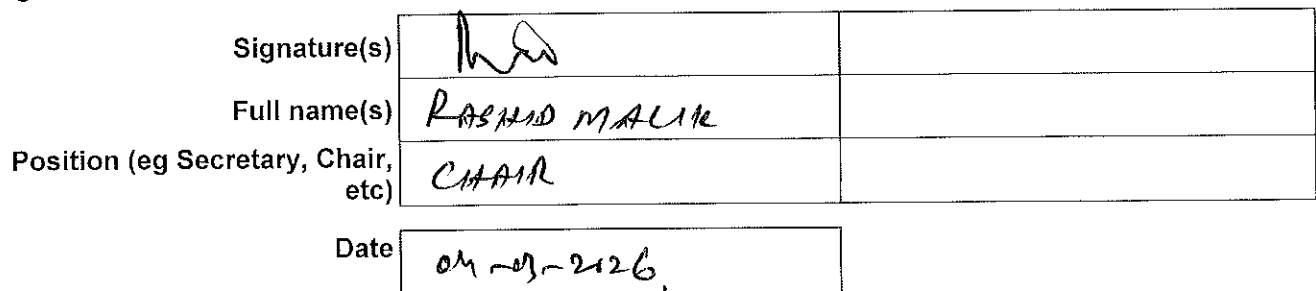 Signature(s)
Full name(s) RASHID MALIK
Position (eg Secretary, Chair, etc) CHAIR
Date 04-03-2026